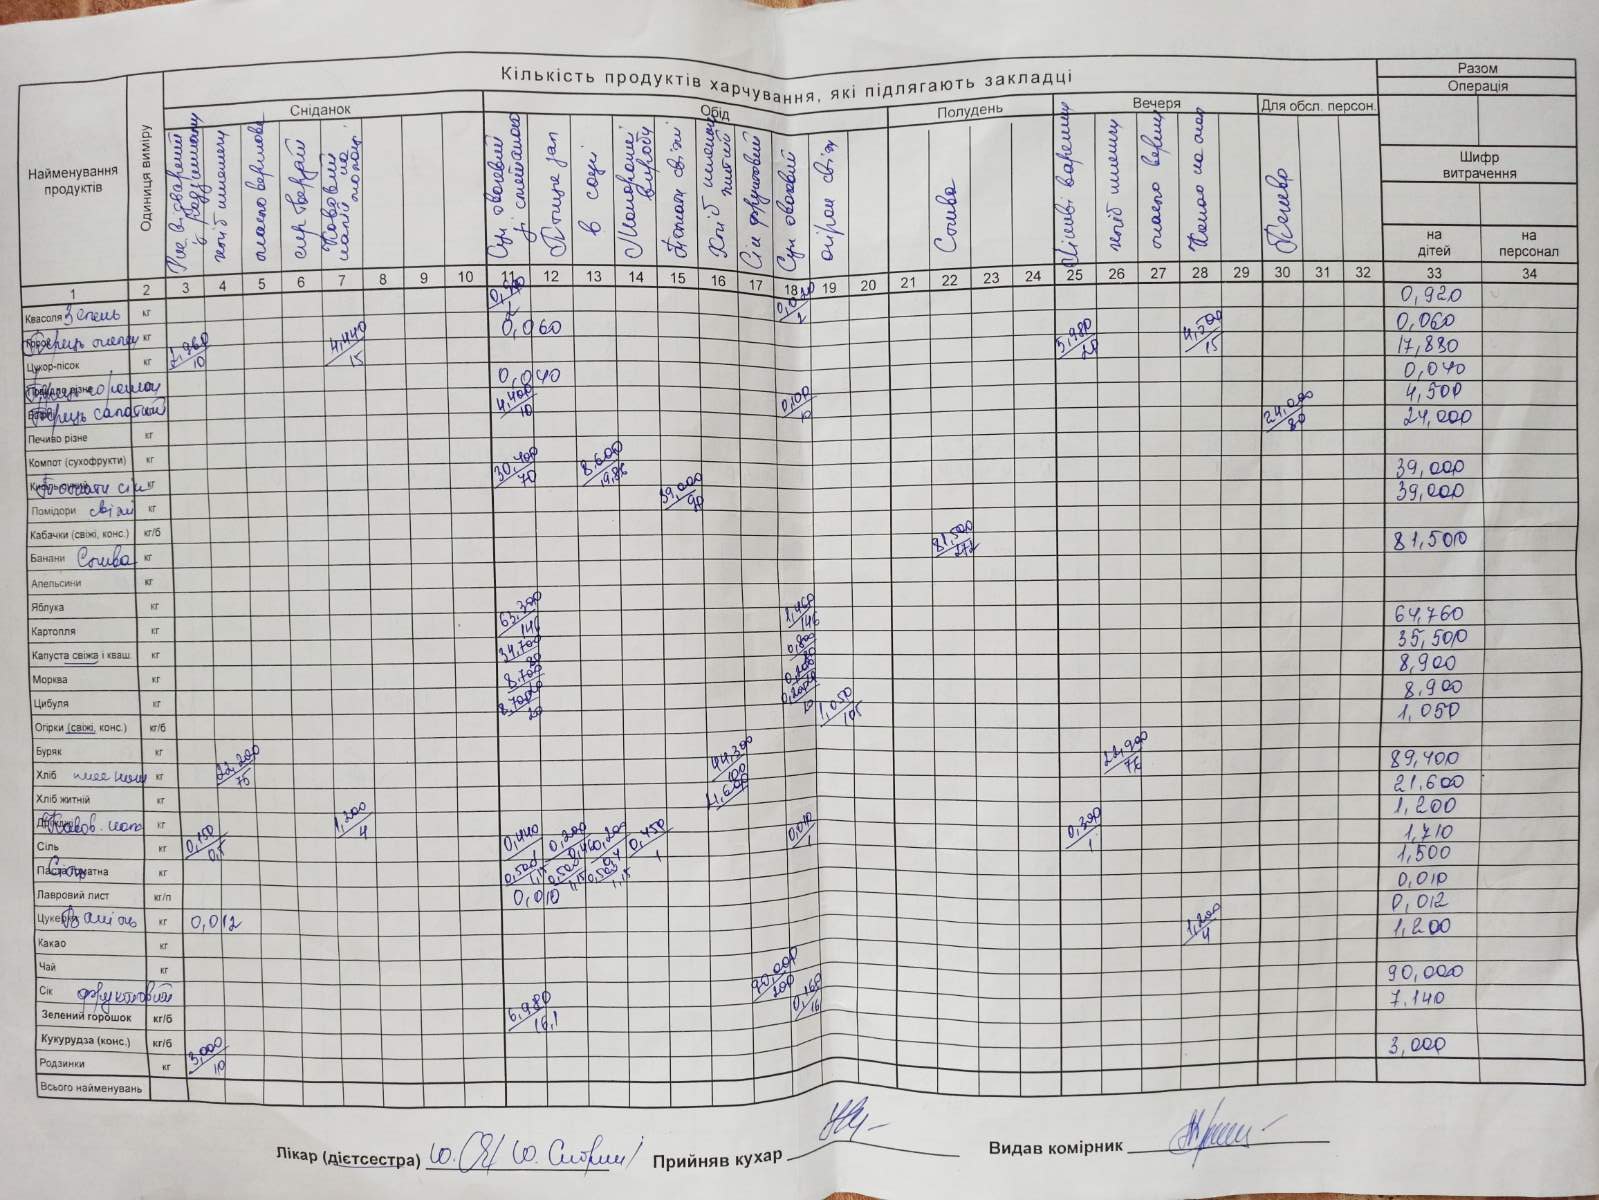 Кількість продуктів харчування, які підлягають закладці
Разом
Операція
Найменування продуктів
Одиниця виміру
Сніданок
Обід
Полудень
Вечеря
Для обсл. персон.
Шифр витрачення
на дітей
на персонал
хліб пшенич
масло вершкове
сир твердий
Птиця зап
в соусі
Макаронні вироби
Томати свіжі
Сік фруктовий
Суп овочевий
огірок свіж
Слива
хліб пшенич
масло верш
Какао на мол
Печиво
1 2 3 4 5 6 7 8 9 10 11 12 13 14 15 16 17 18 19 20 21 22 23 24 25 26 27 28 29 30 31 32 33 34
Квасоля Зелень кг 0,920
Перець кг 0,060 0,060
Цукор-пісок кг 10 4,440/15 5,980/20 4,500/15 17,880
0,040 0,040
Перець салатний кг 4,400/10 0,100/10 4,500
Печиво різне кг 24,000/80 24,000
Компот (сухофрукти) кг
Томати сік кг 30,400/70 8,600/19,86 39,000
Помідори свіжі кг 39,000/90 39,000
Кабачки (свіжі, конс.) кг/б
Банани Слива кг 81,500/272 81,500
Апельсини кг
Яблука кг
Картопля кг 63,300/146 1,460/146 64,760
Капуста свіжа і кваш. кг 34,700/80 0,800/80 35,500
Морква кг 8,700/20 0,200/20 8,900
Цибуля кг 8,700/20 0,200/10 8,900
Огірки (свіжі, конс.) кг/б 1,050/105 1,050
Буряк кг
Хліб пшенич кг 22,200/75 44,300/100 22,900/76 89,400
Хліб житній кг 21,600
кг 1,200/4 1,200
Сіль кг 0,150/0,5 0,440/1 0,200 0,450/1 0,010/1 0,300/1 1,710
Паста томатна кг 0,500/1,15 0,500/1,15 1,15 1,500
Лавровий лист кг/п 0,010 0,010
Цукерки Ваніль кг 0,012 0,012
Какао кг 1,200/4 1,200
Чай кг
Сік фруктовий кг 90,000/200 90,000
Зелений горошок кг/б 6,980/16,1 0,160/16 7,140
Кукурудза (конс.) кг/б
Родзинки кг 3,000/10 3,000
Всього найменувань
Лікар (дієтсестра)
Прийняв кухар
Видав комірник